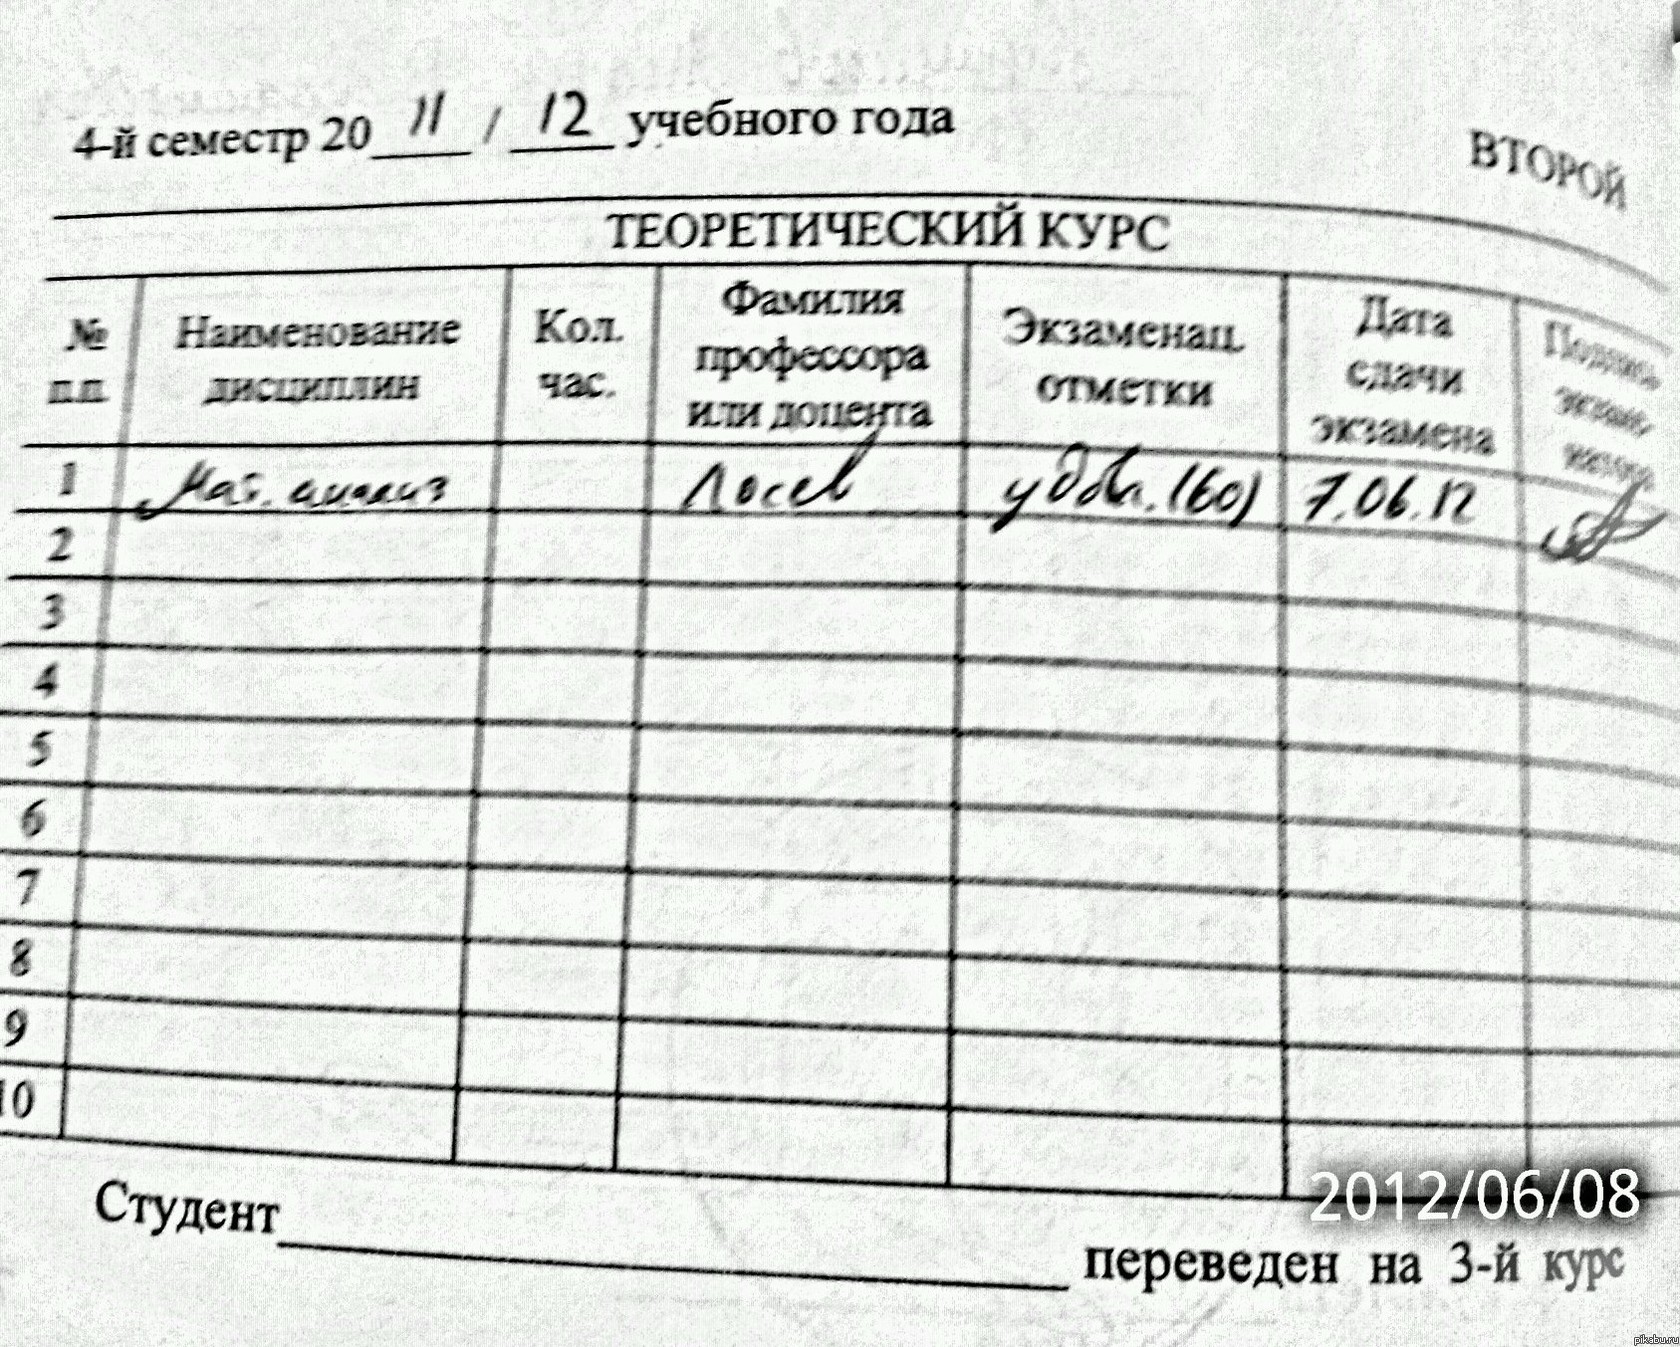 4-й семестр 20 11 / 12 учебного года
ВТОРОЙ
ТЕОРЕТИЧЕСКИЙ КУРС
№ п.п. Наименование дисциплин Кол. час. Фамилия профессора или доцента Экзаменац. отметки Дата сдачи экзамена Подпись
1 Мат. анализ Лосев удовл. (60) 7.06.12
2
3
4
5
6
7
8
9
10
2012/06/08
Студент переведен на 3-й курс
pikabu.ru